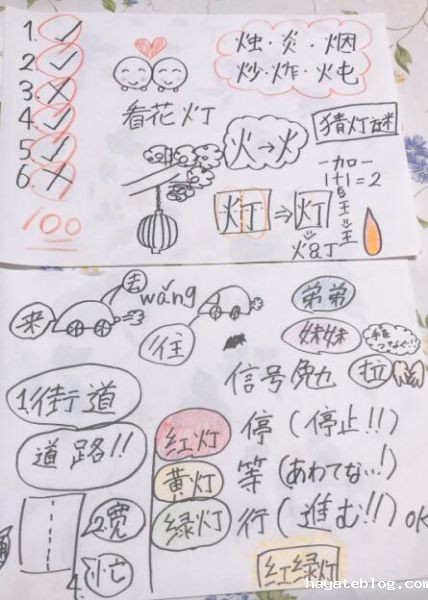 1. ✓
2. ✓
3. ✗
4. ✓
5. ✓
6. ✗
100
看花灯
烛・炎・烟
炒・炸・炖
火→火
猜灯谜
一加一
1+1=2
灯⇒灯
火&丁
来
去
wǎng
往
弟弟
妹妹
拉
1.街道
道路!!
2.宽
4.忙
红灯 停(停止!!)
黄灯 等(あわてない!)
绿灯 行(進む!!) OK
红绿灯
hayateblog.com